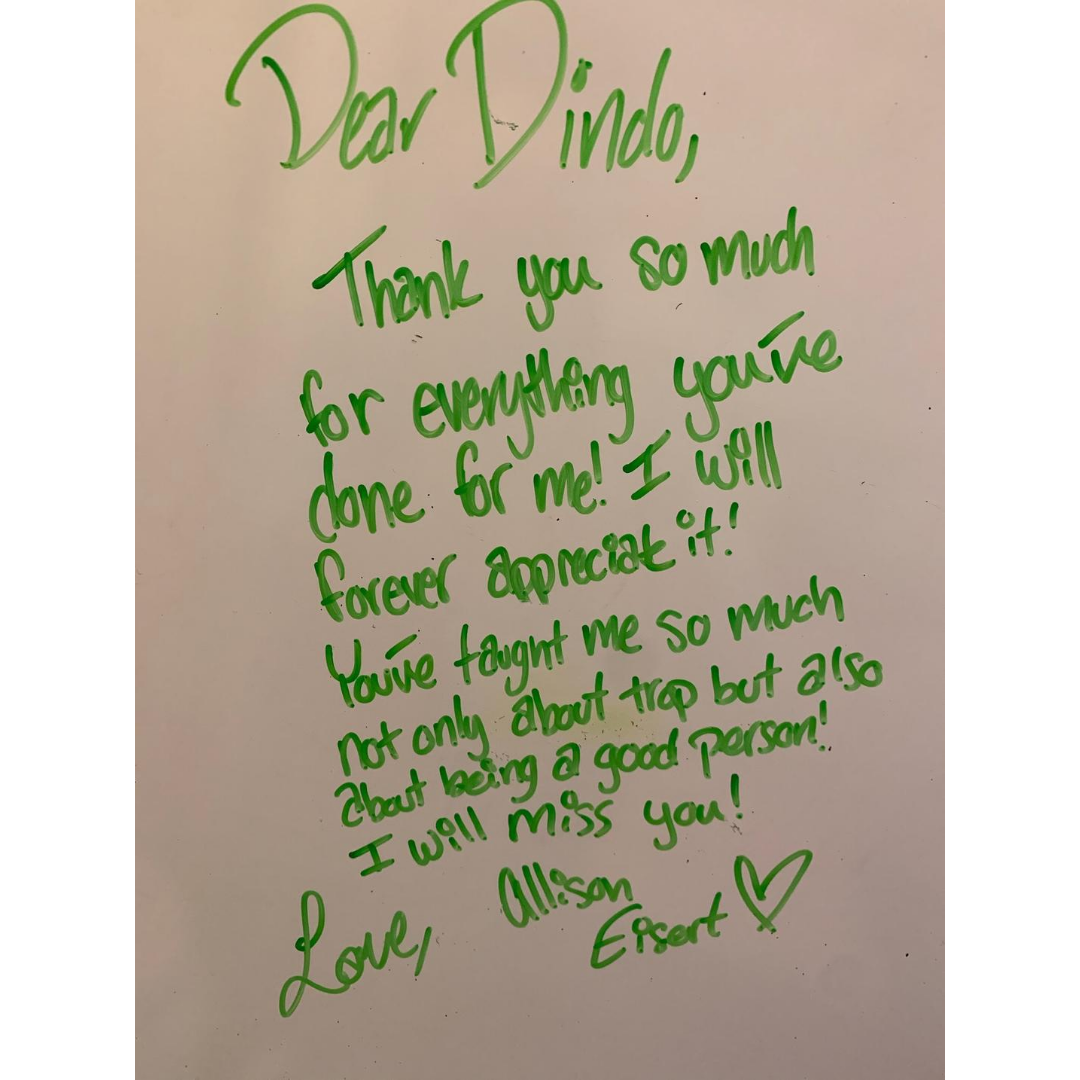 Dear Dindo,
Thank you so much
for everything you've
done for me! I will
forever appreciate it!
You've taught me so much
not only about trap but also
about being a good person!
I will miss you!
Love, Allison
Eisert ♡